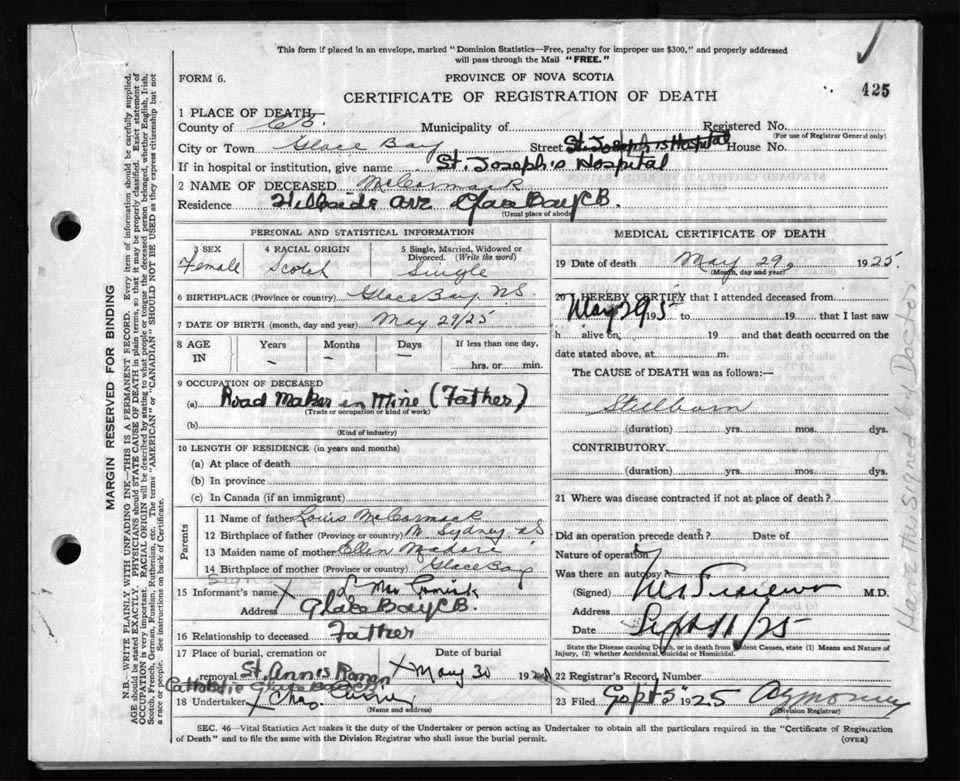 This form if placed in an envelope, marked "Dominion Statistics—Free, penalty for improper use $300," and properly addressed
will pass through the Mail "FREE."
FORM 6.
PROVINCE OF NOVA SCOTIA
425
CERTIFICATE OF REGISTRATION OF DEATH
1 PLACE OF DEATH
County of C.B. Municipality of Registered No.
(For use of Registrar General only)
City or Town Glace Bay Street St. Joseph's Hospital House No.
If in hospital or institution, give name St. Joseph's Hospital
2 NAME OF DECEASED McCormack
Residence Hillside Ave Glace Bay C.B.
(Usual place of abode)
PERSONAL AND STATISTICAL INFORMATION
3 SEX 4 RACIAL ORIGIN 5 Single, Married, Widowed or
Divorced. (Write the word)
Female Scotch Single
6 BIRTHPLACE (Province or country) Glace Bay N.S.
7 DATE OF BIRTH (month, day and year) May 29/25
8 AGE IN Years Months Days If less than one day,
– – – hrs. or min.
9 OCCUPATION OF DECEASED
(a) Road Maker in Mine (Father)
(Trade or occupation or kind of work)
(b)
(Kind of industry)
10 LENGTH OF RESIDENCE (in years and months)
(a) At place of death
(b) In province
(c) In Canada (if an immigrant)
Parents
11 Name of father Louis McCormack
12 Birthplace of father (Province or country) N. Sydney N.S
13 Maiden name of mother Ellen
14 Birthplace of mother (Province or country) Glace Bay
15 Informant's name X L
Address Glace Bay C.B.
16 Relationship to deceased Father
17 Place of burial, cremation or Date of burial
removal St. Ann's Roman X May 30 192
Catholic Glace Bay C.B.
18 Undertaker X Chas.
(Name and address)
MEDICAL CERTIFICATE OF DEATH
19 Date of death May 29, 1925.
(Month, day and year)
20 I HEREBY CERTIFY that I attended deceased from
May 29 19 to 19 that I last saw
h alive on, 19 and that death occurred on the
date stated above, at m.
The CAUSE of DEATH was as follows:—
Stillborn
(duration) yrs. mos. dys.
CONTRIBUTORY
(duration) yrs. mos. dys.
21 Where was disease contracted if not at place of death?
Did an operation precede death? Date of
Nature of operation
Was there an autopsy?
(Signed) M.D.
Address
Date Sept 11/25
State the Disease causing Death, or in death from Violent Causes, state (1) Means and Nature of
Injury, (2) whether Accidental, Suicidal or Homicidal.
22 Registrar's Record Number
23 Filed Sept 5 1925
(Division Registrar)
SEC. 46—Vital Statistics Act makes it the duty of the Undertaker or person acting as Undertaker to obtain all the particulars required in the "Certificate of Registration
of Death" and to file the same with the Division Registrar who shall issue the burial permit.
(OVER)
MARGIN RESERVED FOR BINDING
N.B.—WRITE PLAINLY WITH UNFADING INK—THIS IS A PERMANENT RECORD. Every item of information should be carefully supplied.
AGE should be stated EXACTLY. PHYSICIANS should STATE CAUSE OF DEATH in plain terms, so that it may be properly classified. Exact statement of
OCCUPATION is very important. RACIAL ORIGIN will be described by stating to what people or tongue the deceased person belonged, whether English, Irish,
Scotch, French, German, Russian, Ruthenian, etc. The terms "AMERICAN" or "CANADIAN" SHOULD NOT BE USED as they express citizenship but not
a race or people. See instructions on back of Certificate.
Have this Signed by Doctor